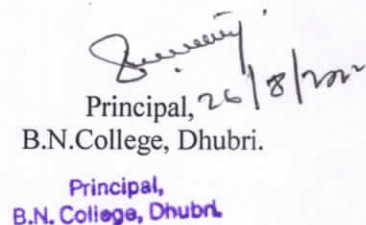 Principal, 26/8/2022
B.N.College, Dhubri.
Principal,
B.N. College, Dhubri.